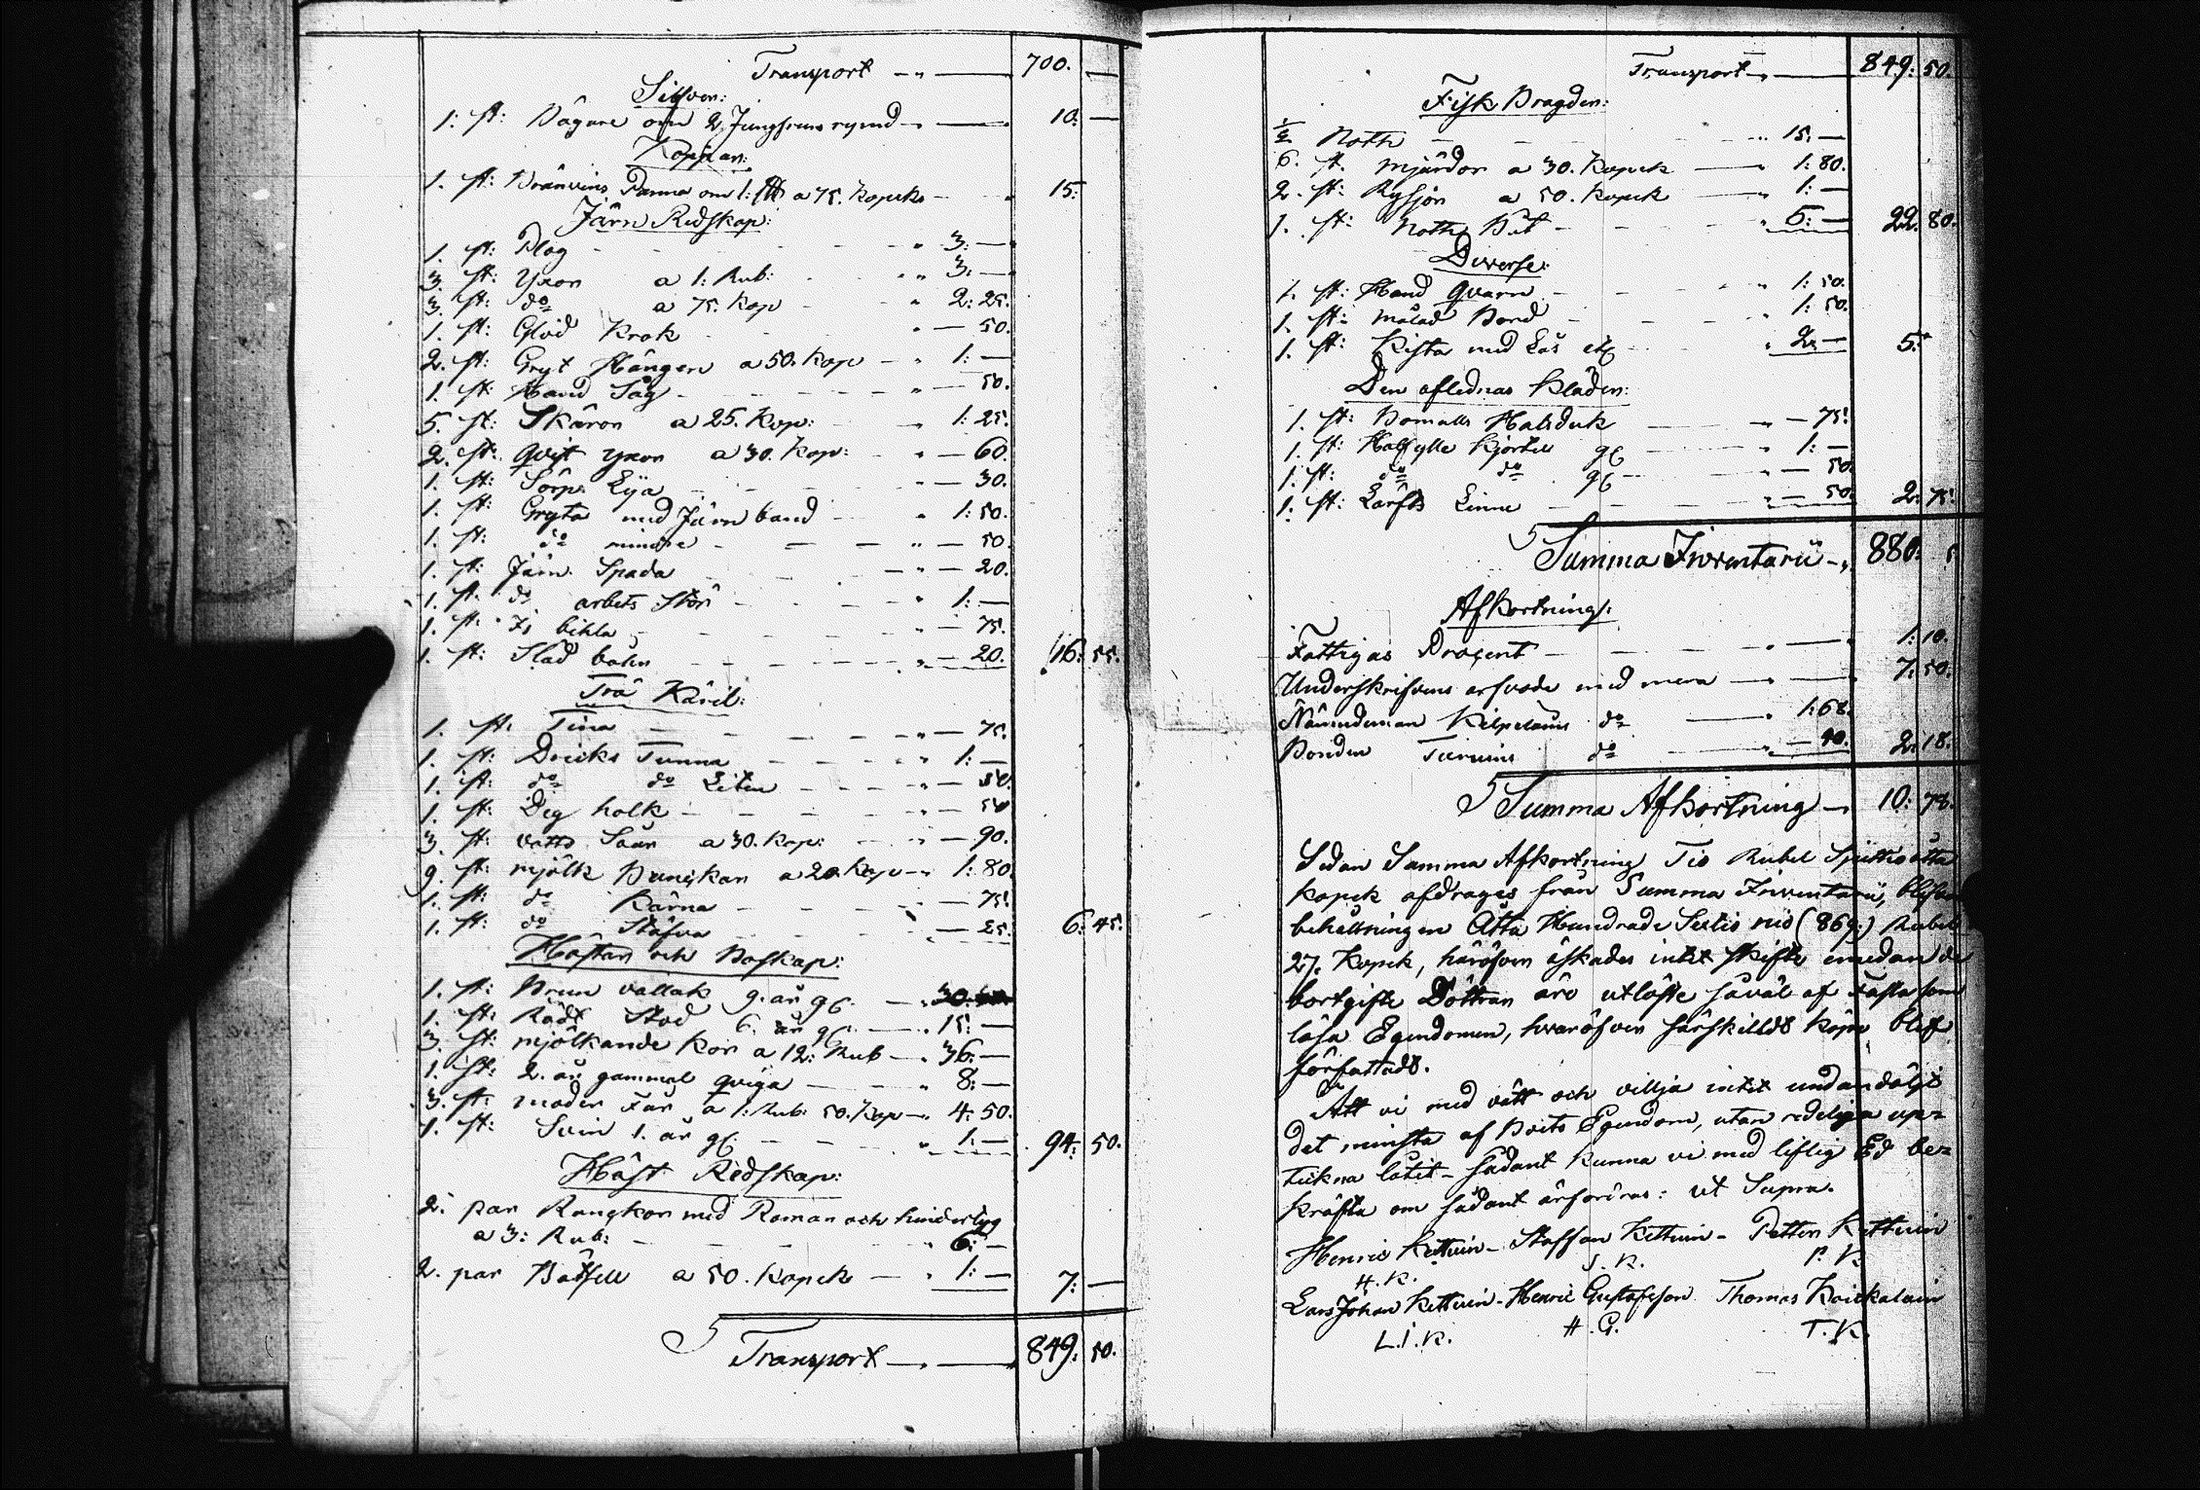 Transport — 700. —
Silfver:
1: st: Bägare om 2 Jungfrurs rymd — 10. —
Koppar:
1. st: Bränvins Panna om 1: a 75. Kopeks — 15:
Järn Redskap:
1. st: Plog 3: —
3. st: Yxor a 1: Rub: 3: —
3. st: do a 75. Kop 2: 25.
1. st: Glöd Krok — 50.
2. st: Gryt Hängen a 50. Kop 1: —
1. st: Hand Såg — 50.
5. st: Skäror a 25. Kop: 1: 25.
2. st: Qvist Yxor a 30. Kop: — 60.
1. st: Sörp — 30.
1. st: Gryta med Järn band 1: 50.
1. st: do mindre — 50.
1. st: Järn Spada — 20.
1. st: do arbets Stör 1: —
1. st: Is bihla — 75.
1. st: Slåd — 20. 16: 55.
Trä Käril:
1. st: Tina — 75.
1. st: Dricks Tunna 1: —
1. st: do do Liten — 50
1. st: Deg holk — 50
3. st: vattu Såar a 30. Kop: — 90.
9. st: mjölk Bunckar a 20 Kop 1: 80.
1. st: do Kärna — 75.
1. st: do Stäfva — 25. 6: 45.
Hästar och Boskap:
1. st: Brun vallak 9. år gl. 30.
1. st: Rödt Stod 6. år gl. 15: —
3. st: mjölkande Kor a 12: Rub 36. —
1. st: 2. år gammal qviga 8: —
3. st: moder Får a 1: Rub: 50. Kop 4: 50.
1. st: Svin 1. år gl. 1: — 94: 50.
Häst Redskap:
2. par Rangkor med Remar och hindertyg
a 3: Rub: 6: —
2. par Båtsell a 50. Kopek 1: — 7: —
Transport — 849: 50.
Transport — 849: 50.
Fisk Bragder:
½ Noth 15: —
6. st. mjärdor a 30. Kopek 1: 80.
2. st: Rysjor a 50. Kopek 1: —
1. st: Noth Båt 5: — 22. 80.
Diverse:
1. st: Hand Qvarn 1: 50.
1. st: målad Bord 1: 50.
1. st: Kista med Lås etc 2: — 5:
Den aflednas Kläder:
1. st: Bomulls Halsduk — 75.
1. st: Halfylle Kjortel gl 1: —
1. st: do do gl — 50.
1. st: Lärfts Linne — 50. 2: 75.
Summa Inventarii 880: 5
Afkortning:
Fattigas Procent 1: 10.
Underskrifvens arfvode med mera 7. 50.
Nämndeman Kilpeläins do 1: 68.
Bonden do — 50. 2. 18.
Summa Afkortning 10: 78.
Sedan Summa Afkortning Tio Rubel Sjuttioåtta
kopek afdrages från Summa Inventarii, blifver
behållningen Åtta Hundrade Sextio nio (869:) Rubel
27. Kopek, häröfver äskades intet skifte emedan de
bortgifte Döttrar äro utlöste såväl af Fasta som
lösa Egendomen, hvaröfver särskilldt köpe blef
författadt.
Att vi med vätt och villja intet undandöljt
det minsta af Boets Egendom, utan redeliga up=
tickna låtit – sådant kunna vi med liflig Ed be=
kräfta om sådant ärfordras: ut Supra.
Henric Kettuin – Staffan Kettuin – Petter Kettuin
H. K. S. K. P. K
Lars Johan Kettuin – Henric Gustafsson Thomas Kaickalain
L. J. K. H. G. T. K.